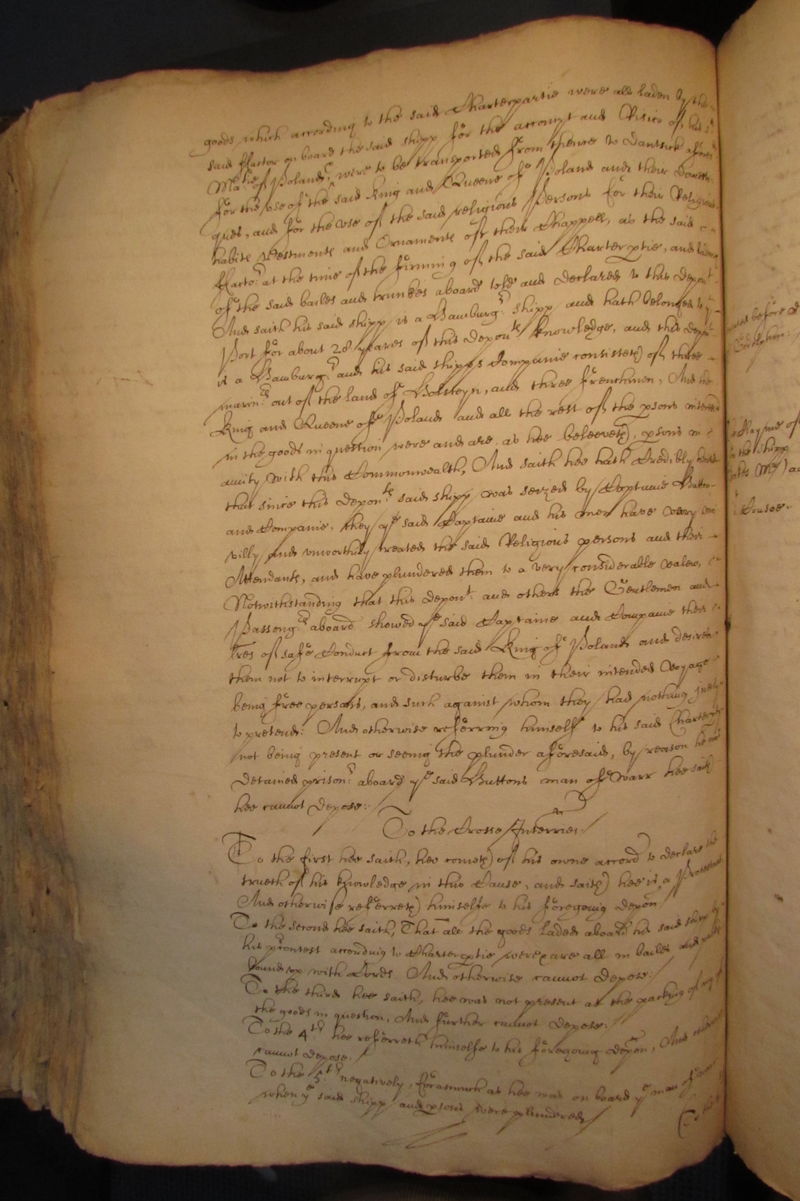 goods which according to the said Charterpartie were all laden by the
said ffactor on board the said shipp for the accompt and Risico of his sd
Matie of Poland, were to be transported from thence to Dantsick aforesd
for the use of the said King and Queene of Poland and their
ques, and for the use of the said religious Persons for their Religious
habits vestments and Ornaments of their Chappell, as the said
ffactor at the time of the firming of the said Charterptie, and lading
of the said bailes and trunkes aboard told and declared to this depont
And saith his said shipp is a Hamburgr shipp and hath belonged to yt
Port for about 28 yeares of this deponts knowledge, and this depont
is a Hamburgr and his said shipps Companie consisteth of three
marinrs out of the land of Holsteyn, and three frenchmen, And the
King and Queene of Poland and all the rest of the psons interested
in the goods in question were and are as hee beleeveth, psons in
amity with this Commonwealth, And saith hee hath Credibly heard
that since this deponts said shipp was seized by Captaine Button
and Companie, they ye said Captaine and his men have very un
civilly and unworthily treated the said Religious persons and their
Attendants, and have plundered them to a very considerable valew,
Notwithstanding that this depont and others the Gentlemen and
Passengrs aboard shewed ye said Captaine and Companie their
lres of safe Conduct from the said King of Poland and desired
them not to interrupt or disturbe them in their intended Voyage
being free persons, and such against whom they had nothing justly
to pretend: And otherwise referring himself to his said Charterptie
not being present or seeing the plunder aforesaid, by reason he was
detained prisonr aboard ye said Buttons man of Warr hee saith
hee cannot depose:
To the Crosse Interries.
To the first hee saith, hee cometh of his owne accord to declare the
trueth of his knowledge in this Cause, and saith hee is a Protestant
And otherwise referreth himselfe to his foregoing deposn
To the second hee saith, That all the goods laded aboard his said shipp by
his protest according to Charterptie were & are all in bailes and packs
bound up with Cords And otherwise cannot depose.
To the third hee saith, hee was not present at the packing of any of
the goods in question, And further cannot depose.
To the 4th hee referreth himselfe to his foregoing deposn, And otherwise
cannot depose.
To the 5th negatively, forasmuch as hee was on board ye man of warr
when ye said shipp and psons were plundered